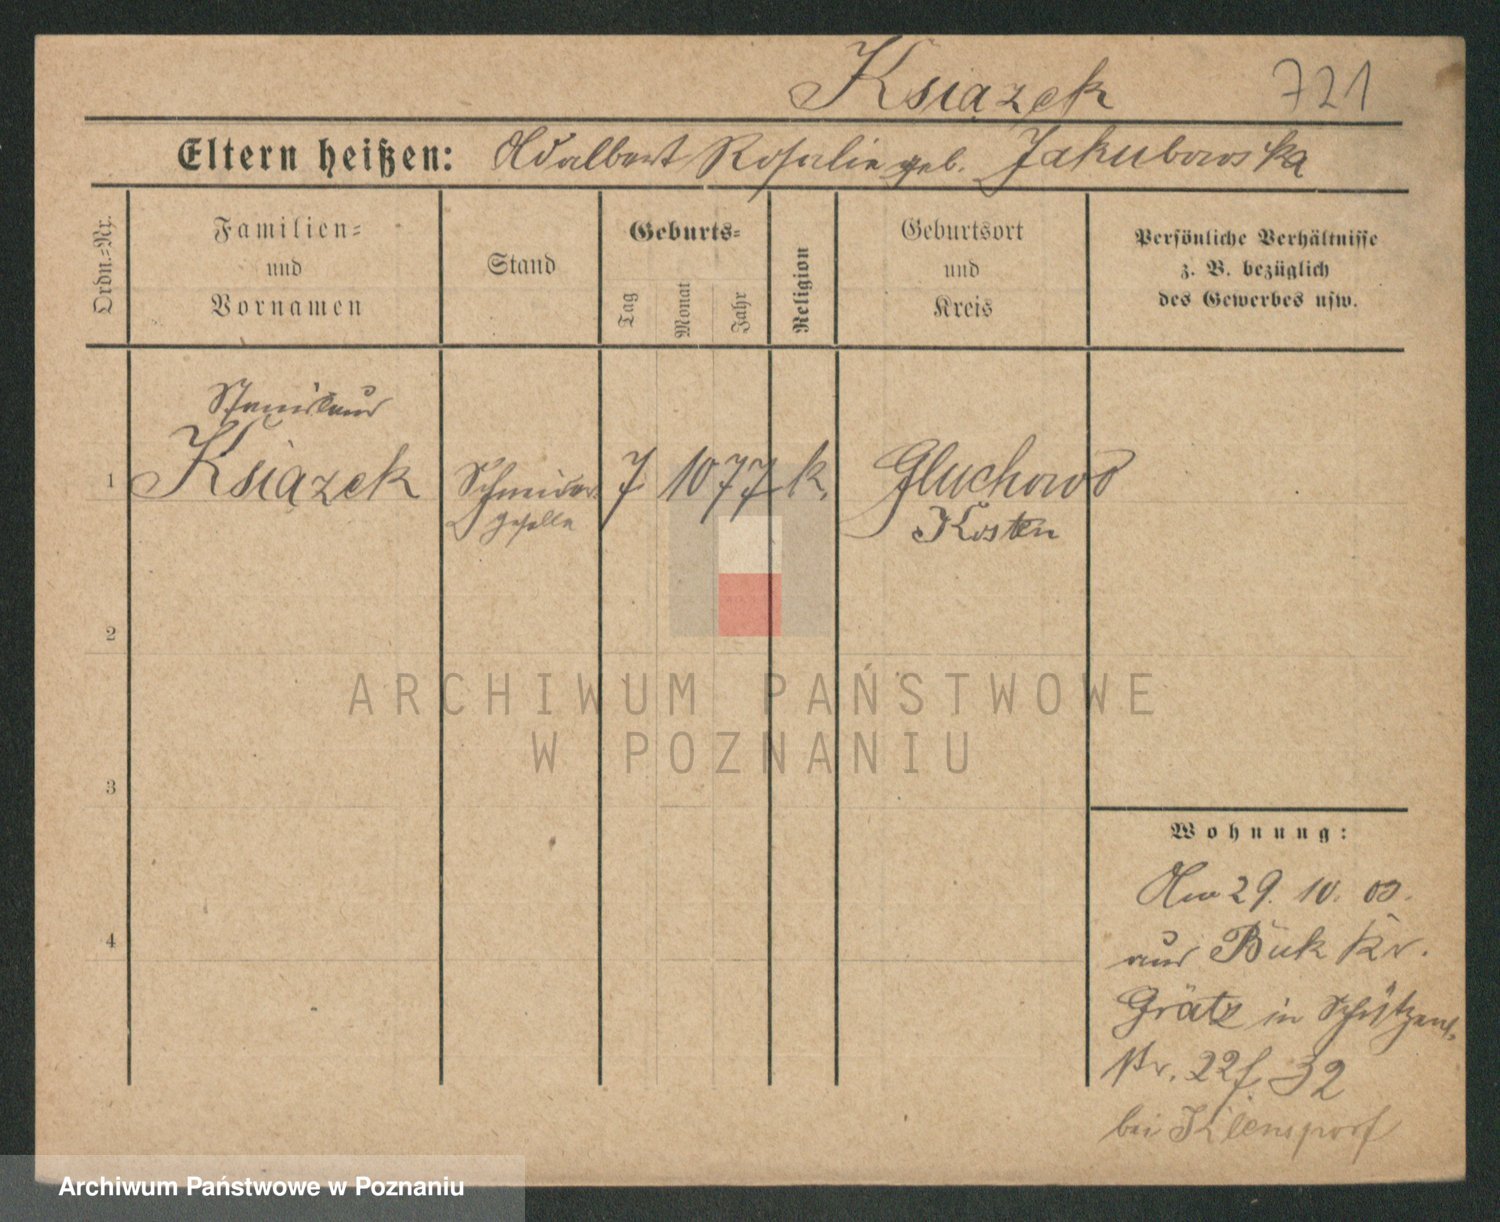 Ksiązek 721
Eltern heißen: Adalbert Rosalie geb. Jakubowska
Ordn.-Nr.
Familien-
und
Vornamen
Stand
Geburts-
Tag
Monat
Jahr
Religion
Geburtsort
und
Kreis
Persönliche Verhältnisse
z. B. bezüglich
des Gewerbes usw.
Stanislaus
1 Ksiązek Schneider 7 10 77 k. Gluchowo
geselle Kosten
2
3
4
ARCHIWUM PAŃSTWOWE
W POZNANIU
Wohnung:
29. 10. 03.
aus Buk Kr.
Grätz in Schützenst.
Nr. 22 32
bei
Archiwum Państwowe w Poznaniu